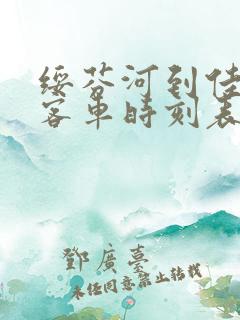 绥芬河到佳
客車時刻表
鄧廣臺
未经同意禁止转载